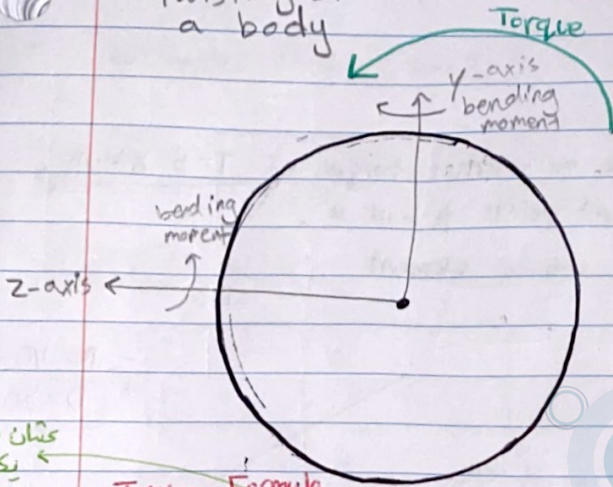 a body
Torque
y-axis
bending
moment
bending
moment
z-axis
عشان
Formula